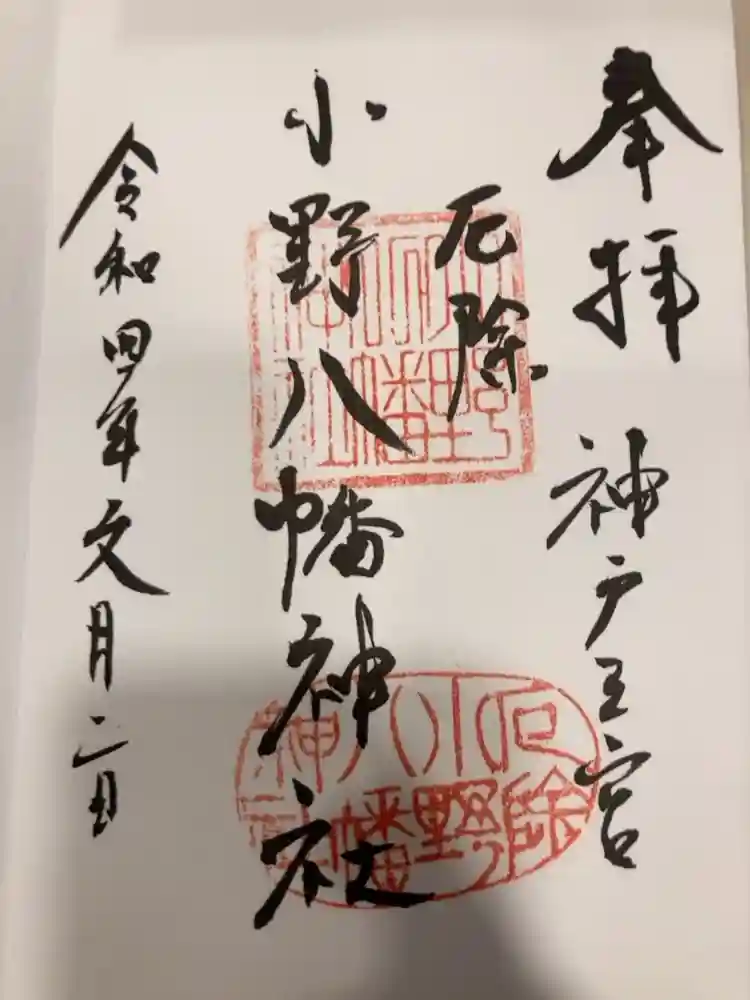 奉拝 神戸三宮
厄除
小野八幡神社
令和四年文月二日
小野八幡神社
厄除小野八幡神社